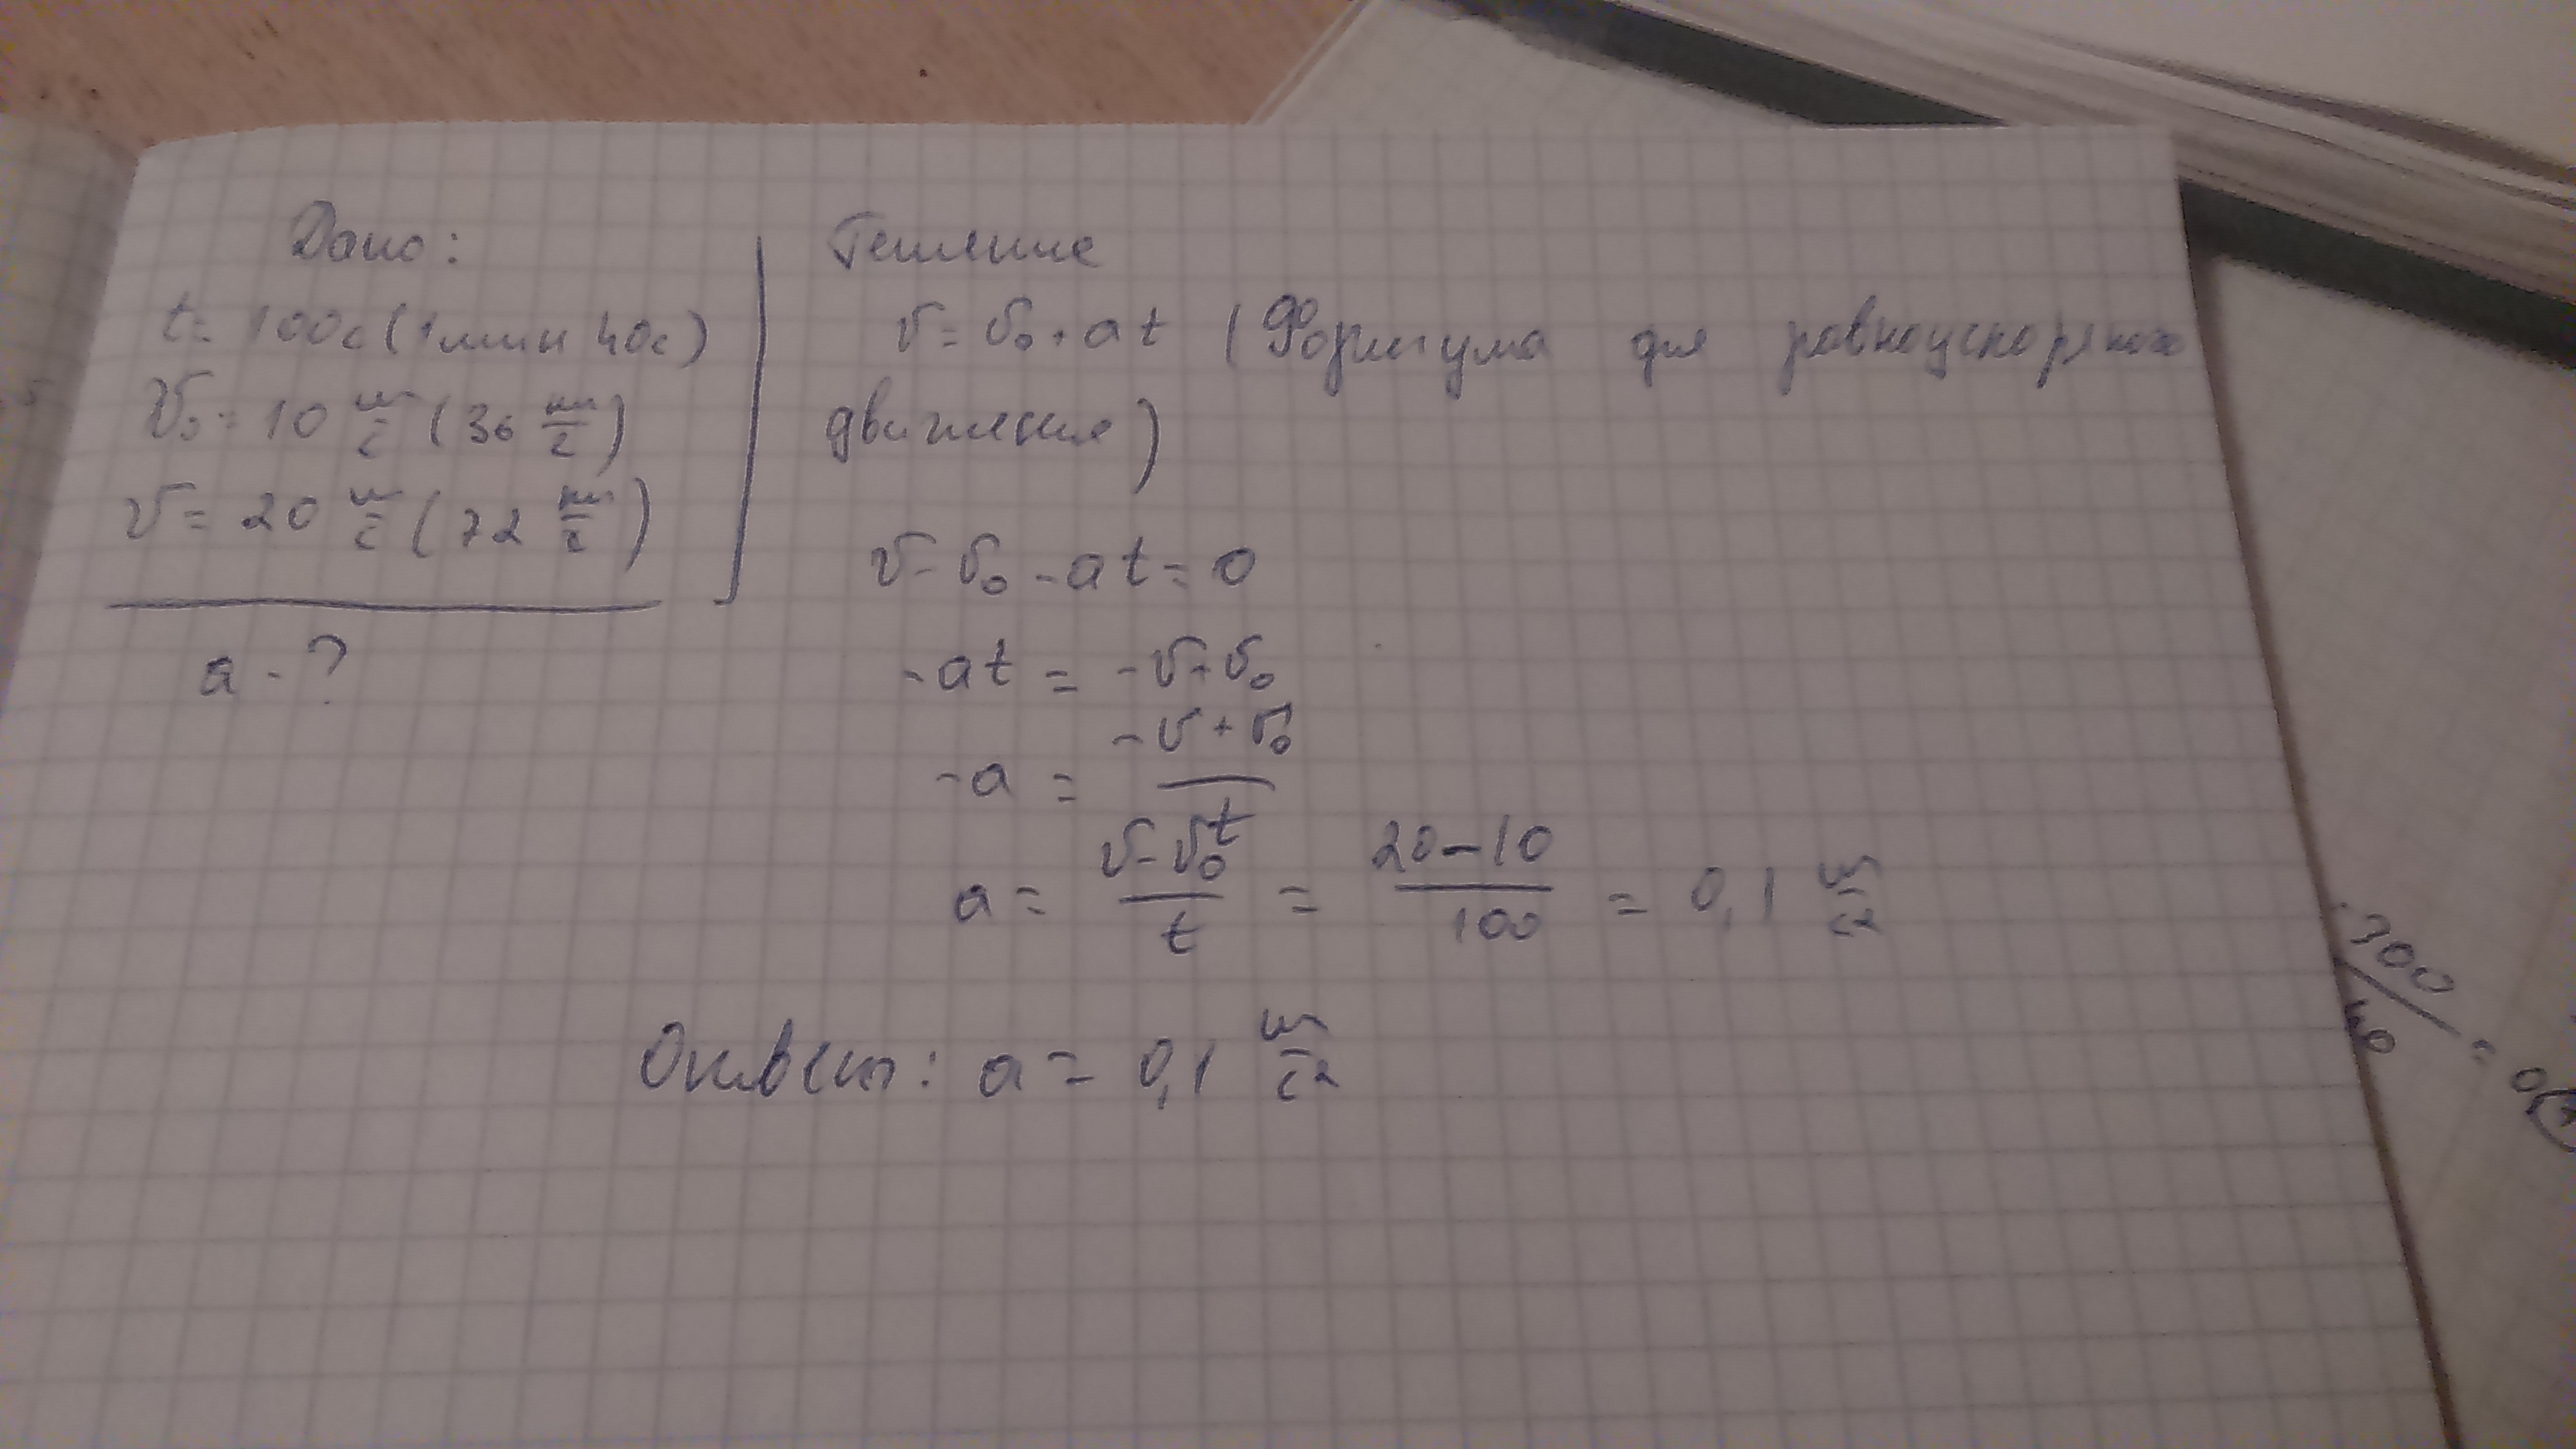 Дано:
t = 100с (1 мин 40с)
v₀ = 10 м/с (36 км/ч)
v = 20 м/с (72 км/ч)
a - ?
Решение
v = v₀ + at (Формула для равноускоренного
движения)
v - v₀ - at = 0
-at = -v + v₀
-a = (-v + v₀)/t
a = (v - v₀)/t = (20 - 10)/100 = 0,1 м/с²
Ответ: a = 0,1 м/с²